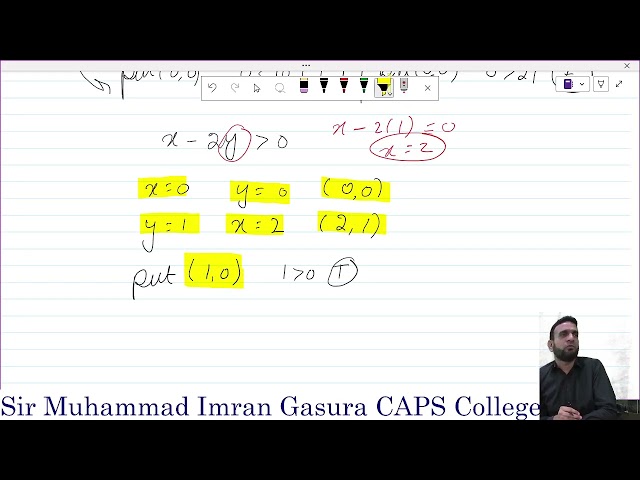 put (0,0)
x - 2y > 0 x - 2(1) = 0
x = 2
x = 0 y = 0 (0,0)
y = 1 x = 2 (2,1)
put (1,0) 1 > 0 T
Sir Muhammad Imran Gasura CAPS College